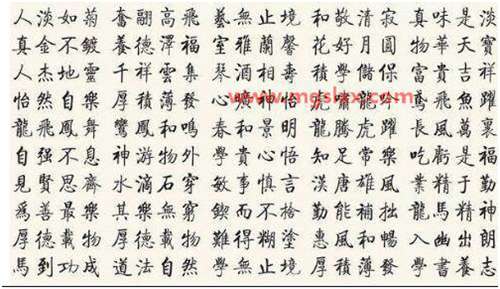 人淡如菊 奮翮高飛 藝無止境 和敬清寂 真味是淡
真金不鍍 養德澤福 室雅蘭馨 花好月圓 物華天寶
人杰地靈 千祥雲集 琴酒相壽 積學儲保 富貴吉祥
怡然自樂 厚積薄發 心曠神怡 虎躍 鳶飛魚躍
龍飛鳳舞 鸞鳳和鳴 春和景明 龍騰虎躍 長風萬裏
自强不息 神游物外 學貴心悟 知足常樂 吃虧是福
見賢思齊 水滴石穿 敏事慎言 漢唐雄風 業精于勤
為善最樂 其樂無窮 鍥而不捨 勤能補拙 龍馬精神
厚德載物 厚德載物 難得糊塗 惠風和暢 入幽出朗
馬到功成 道法自然 學無止境 厚積薄發 學書養志